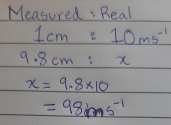 Measured : Real
1cm : 10ms⁻¹
9.8cm : x
x = 9.8×10
= 98ms⁻¹